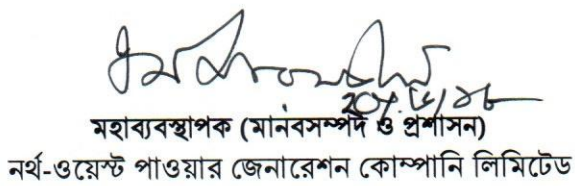 মহাব্যবস্থাপক (মানবসম্পদ ও প্রশাসন)
নর্থ-ওয়েস্ট পাওয়ার জেনারেশন কোম্পানি লিমিটেড